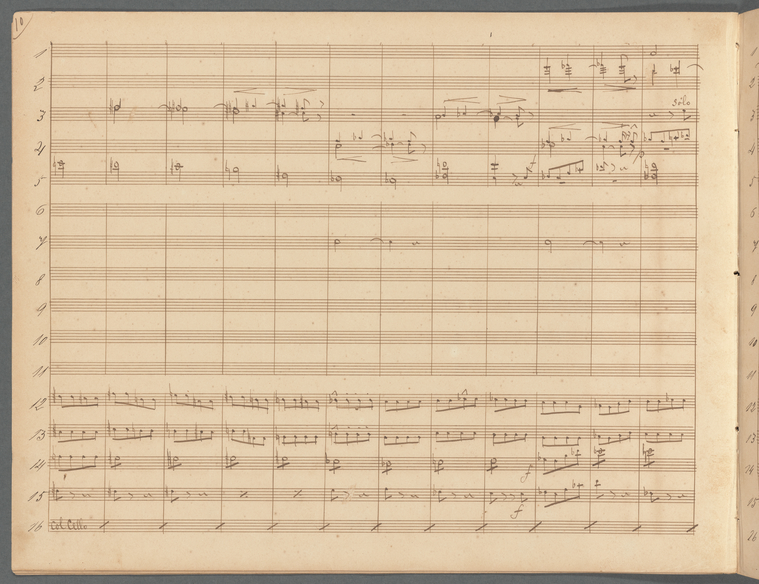 10
1
2
3 Solo
4
5
f
6
7
8
9
10
11
12
13
14
f
15
f
16 Col Cello
1
5
6
7
9
11
13
14
15